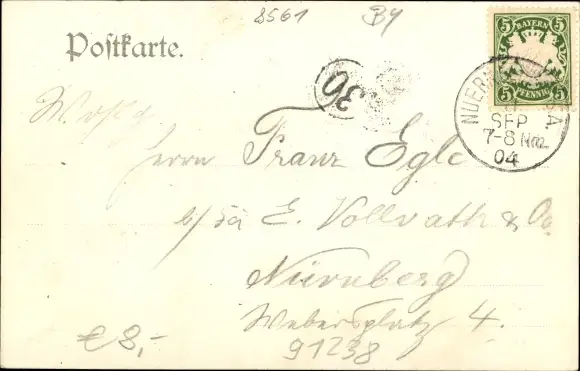 8561 By
Postkarte.
5 BAYERN 5
5 PFENNIG 5
NUERN
SEP
7-8 Nm.
04
30
Herrn Franz Egle
E. Vollrath & Co
Nürnberg
Webersplatz 4.
€ 8,- 91238